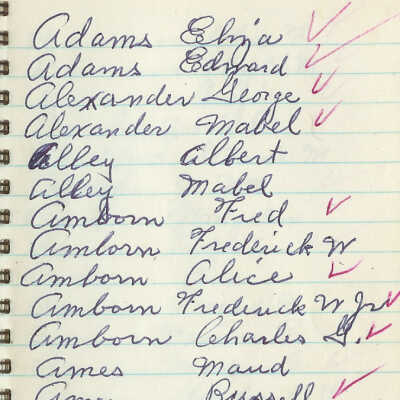 Adams Elija
Adams Edward
Alexander George
Alexander Mabel
Alley Albert
Alley Mabel
Amborn Fred
Amborn Frederick W
Amborn Alice
Amborn Frederick W Jr
Amborn Charles G.
Ames Maud
Russell